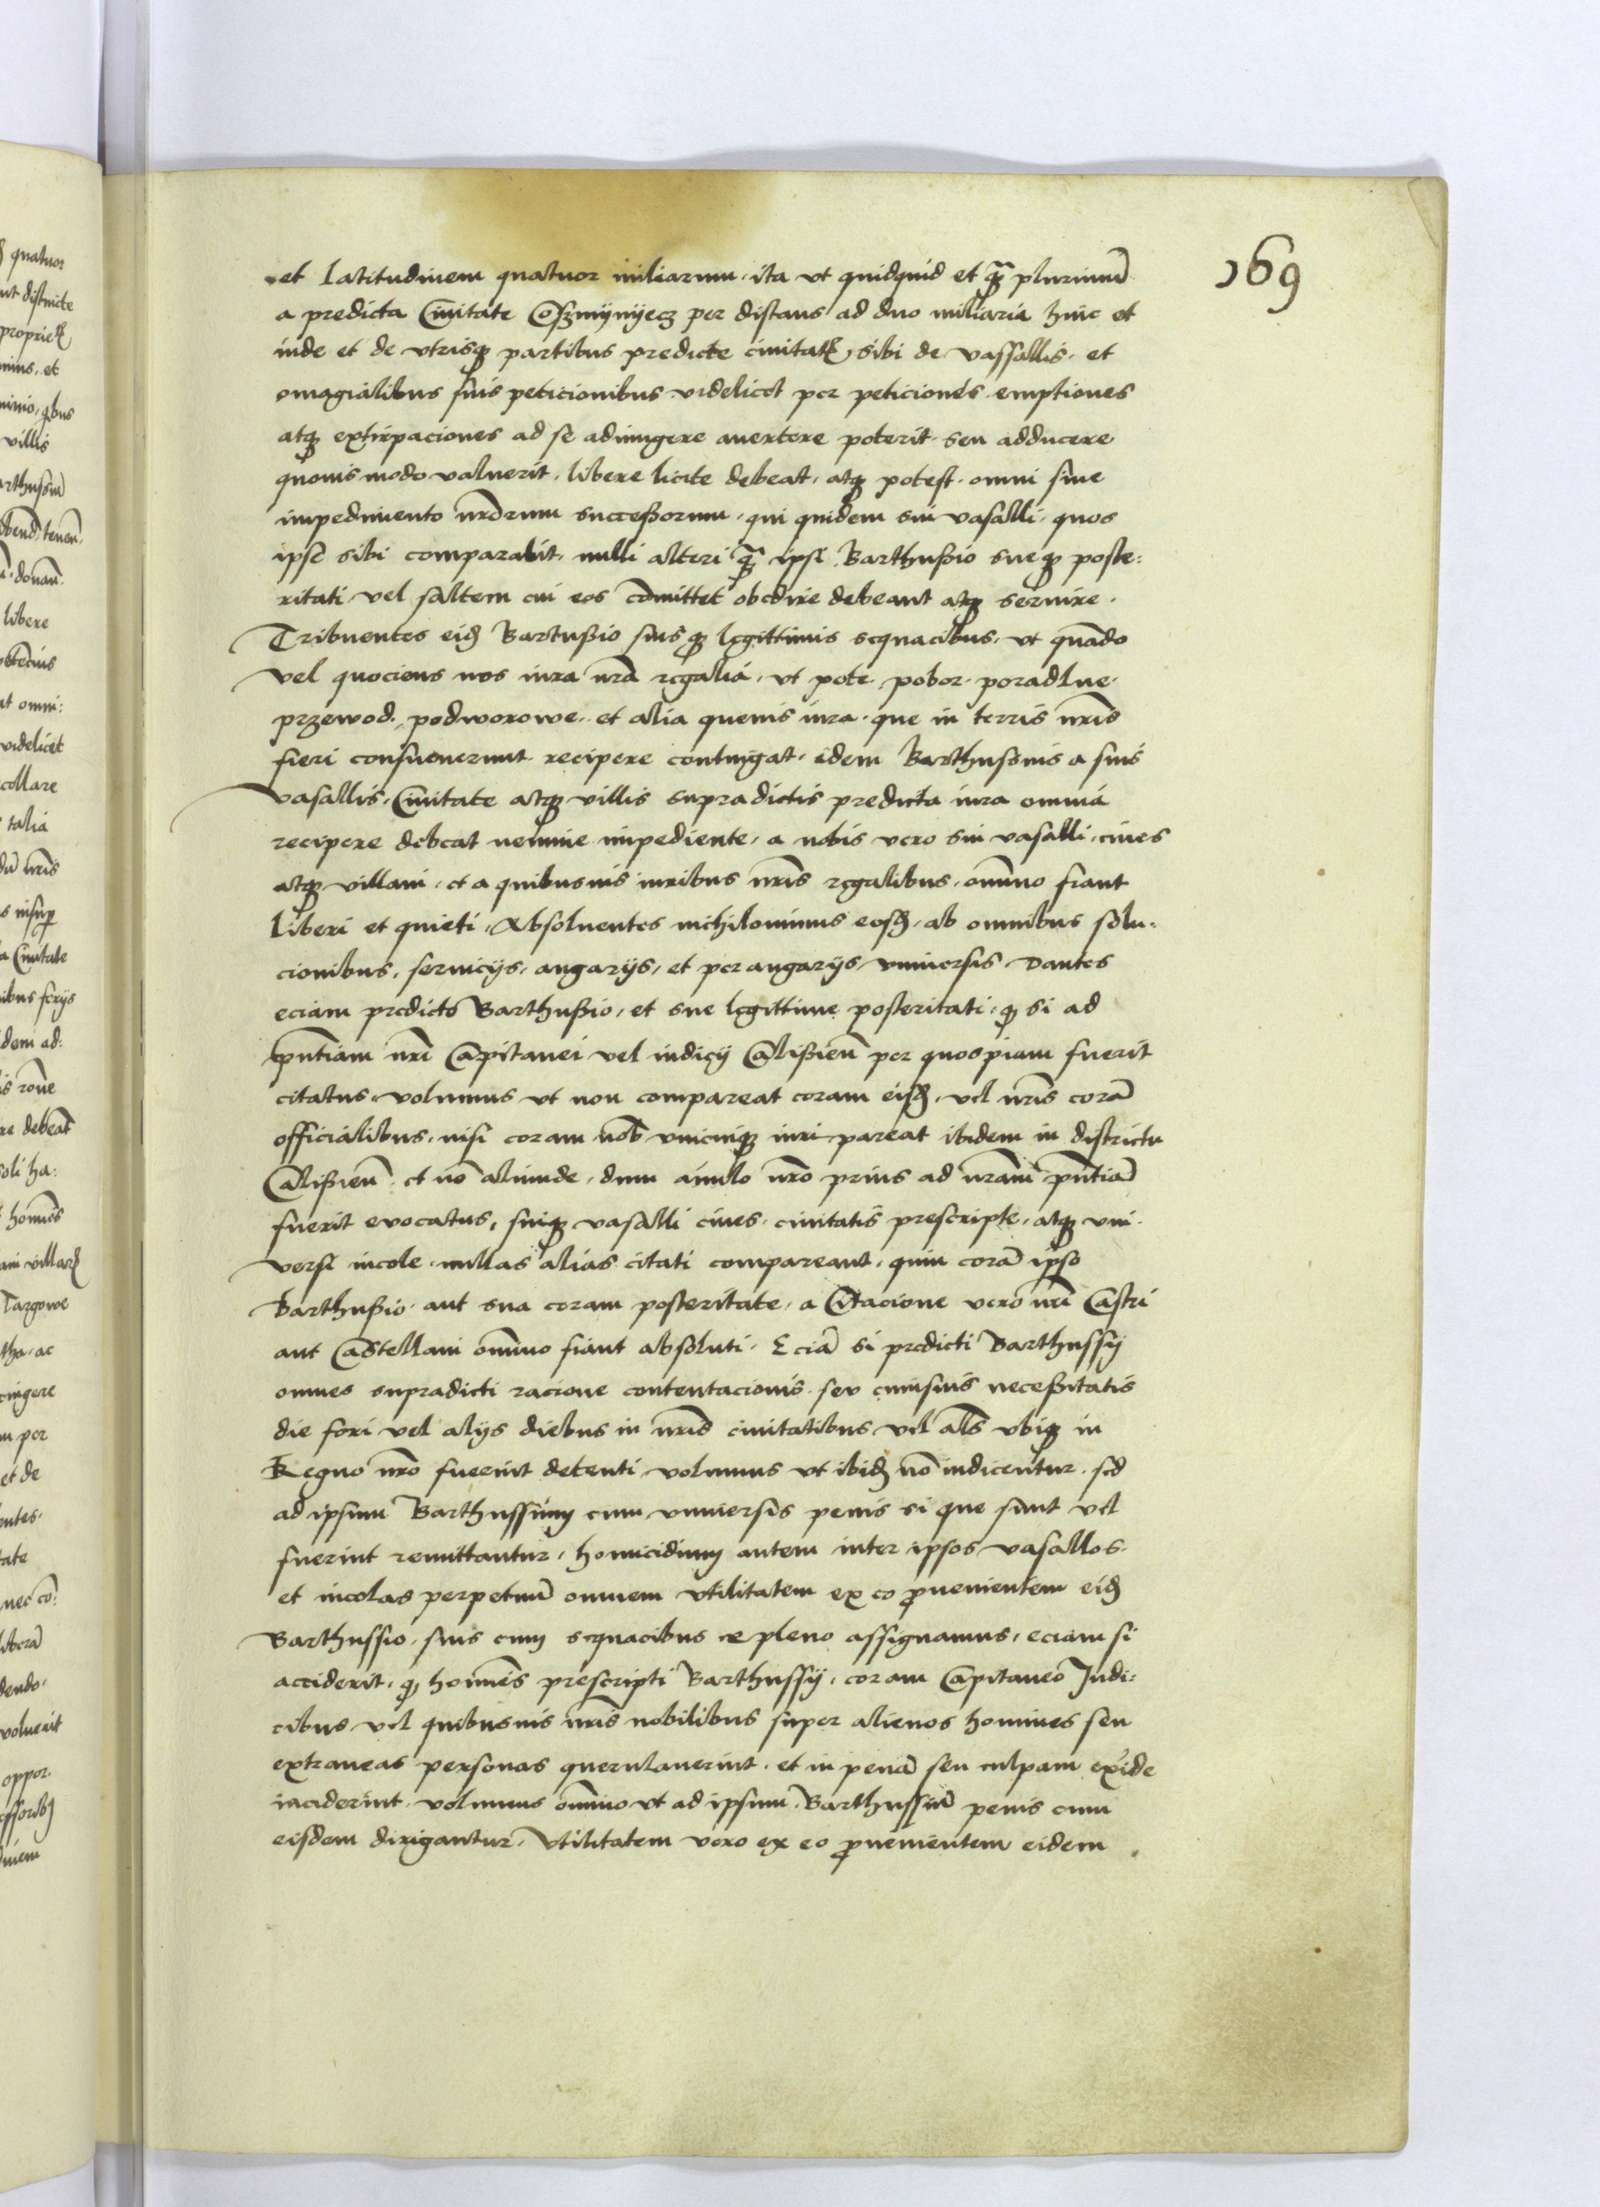 169
et latitudinem quatuor miliarum, ita vt quidquid et q̃ꝫ plurimũ
a predicta Ciuitate Coszmynyecz per distans ad duo miliaria hinc et
inde et de vtrisqꝫ partibus predicte ciuitatꝭ, sibi de vassallis, et
omagialibus suis peticionibus videlicet per peticiones emptiones
atqꝫ extirpaciones ad se adiungere auertere poterit seu adducere
quouis modo valuerit, libere licite debeat, atqꝫ potest, omni sine
impedimento nr̃orum successorum, qui quidem sui vasalli, quos
ipse sibi comparabit, nulli alteri q̃ꝫ ipsi Barthussio sueqꝫ poste:
ritati vel saltem cui eos cõmittet obedire debeant atqꝫ seruire.
Tribuentes eidꝫ Bartussio suisqꝫ legittimis sequacibus, vt quãdo
vel quociens nos iura nr̃a regalia, vt pote pobor, poradlne,
przewod, podworowe, et alia queuis iura, que in terris nr̃is
fieri consueuerunt recipere contingat, idem Barthusonis a suis
vasallis, Ciuitate atqꝫ villis supradictis predicta iura omnia
recipere debeat nemine impediente, a nobis vero sui vasalli, ciues
atqꝫ villani, et a quibusuis iuribus nr̃is regalibus, om̃ino fiant
liberi et quieti, Absoluentes nichilominus eosdꝫ, ab omnibus solu:
cionibus, seruicijs, angarijs, et per angarijs, vniuersis, Dantes
eciam predicto Barthussio, et sue legittime posteritati, ꝙ si ad
pñtiam nr̃i Capitanei vel iudicij Calissieñ per quospiam fuerit
citatus, volumus vt non compareat coram eisdꝫ, vel nr̃is corã
officialibus, nisi coram nob̃ vnicuiqꝫ iuri pareat ibidem in districtu
Calissieñ et nõ aliunde, dum anulo nr̃o prius ad nr̃am pñtiã
fuerit evocatus, suiqꝫ vasalli ciues, ciuitatis prescripte, atqꝫ vni:
versi incole nullas alias citati compareant, quin corã ipso
Barthussio aut sua coram posteritate, a Citacione vero nr̃i Castri
aut Castellani om̃ino fiant absoluti, Eciã si predicti Barthussij
omnes supradicti racione contentacionis seu cuiusuis necessitatis
die fori vel alijs diebus in nr̃is ciuitatibus vel als̃ vbiqꝫ in
Regno nr̃o fuerint detenti volumus vt ibidꝫ nõ iudicentur, sed
ad ipsum Barthussium cum vniuersis penis si que sunt vel
fuerint remittantur, homicidium autem inter ipsos vasallos
et incolas perpetuũ omnem vtilitatem ex eo ꝓuenientem eidꝫ
Barthussio, suis cum sequacibus ex pleno assignamus, eciam si
acciderit, ꝙ homines prescripti Barthussij, coram Capitaneo Judi:
cibus vel quibusuis nr̃is nobilibus super alienos homines seu
extraneas personas querulauerint, et in penã seu culpam exĩde
inciderint, volumus om̃ino vt ad ipsum Barthussiũ penis cum
eisdem dirigantur, Vtilitatem vero ex eo ꝓuenientem eidem